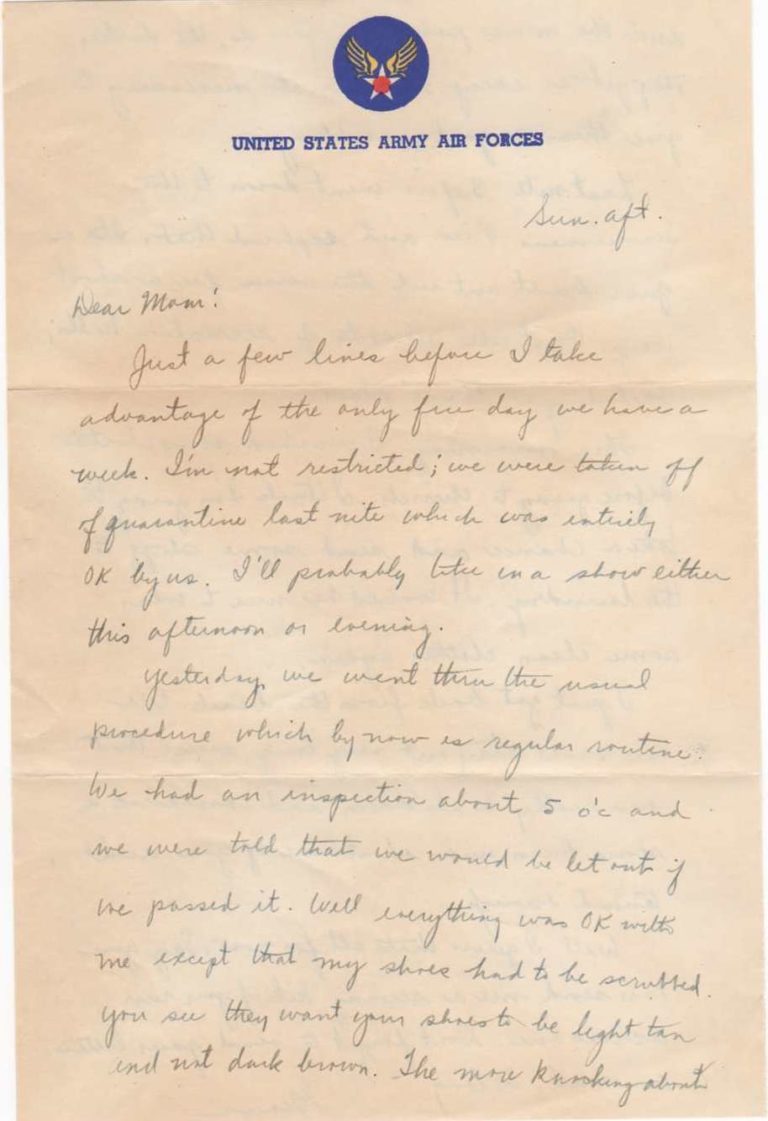 UNITED STATES ARMY AIR FORCES
Sun. aft.
Dear Mom:
Just a few lines before I take
advantage of the only free day we have a
week. I'm not restricted; we were taken off
of quarantine last nite which was entirely
OK by us. I'll probably take in a show either
this afternoon or evening.
Yesterday, we went thru the usual
procedure which by now is regular routine.
We had an inspection about 5 o'c and
we were told that we would be let out if
we passed it. Well everything was OK with
me except that my shoes had to be scrubbed.
You see they want your shoes to be light tan
and not dark brown. The more knocking about